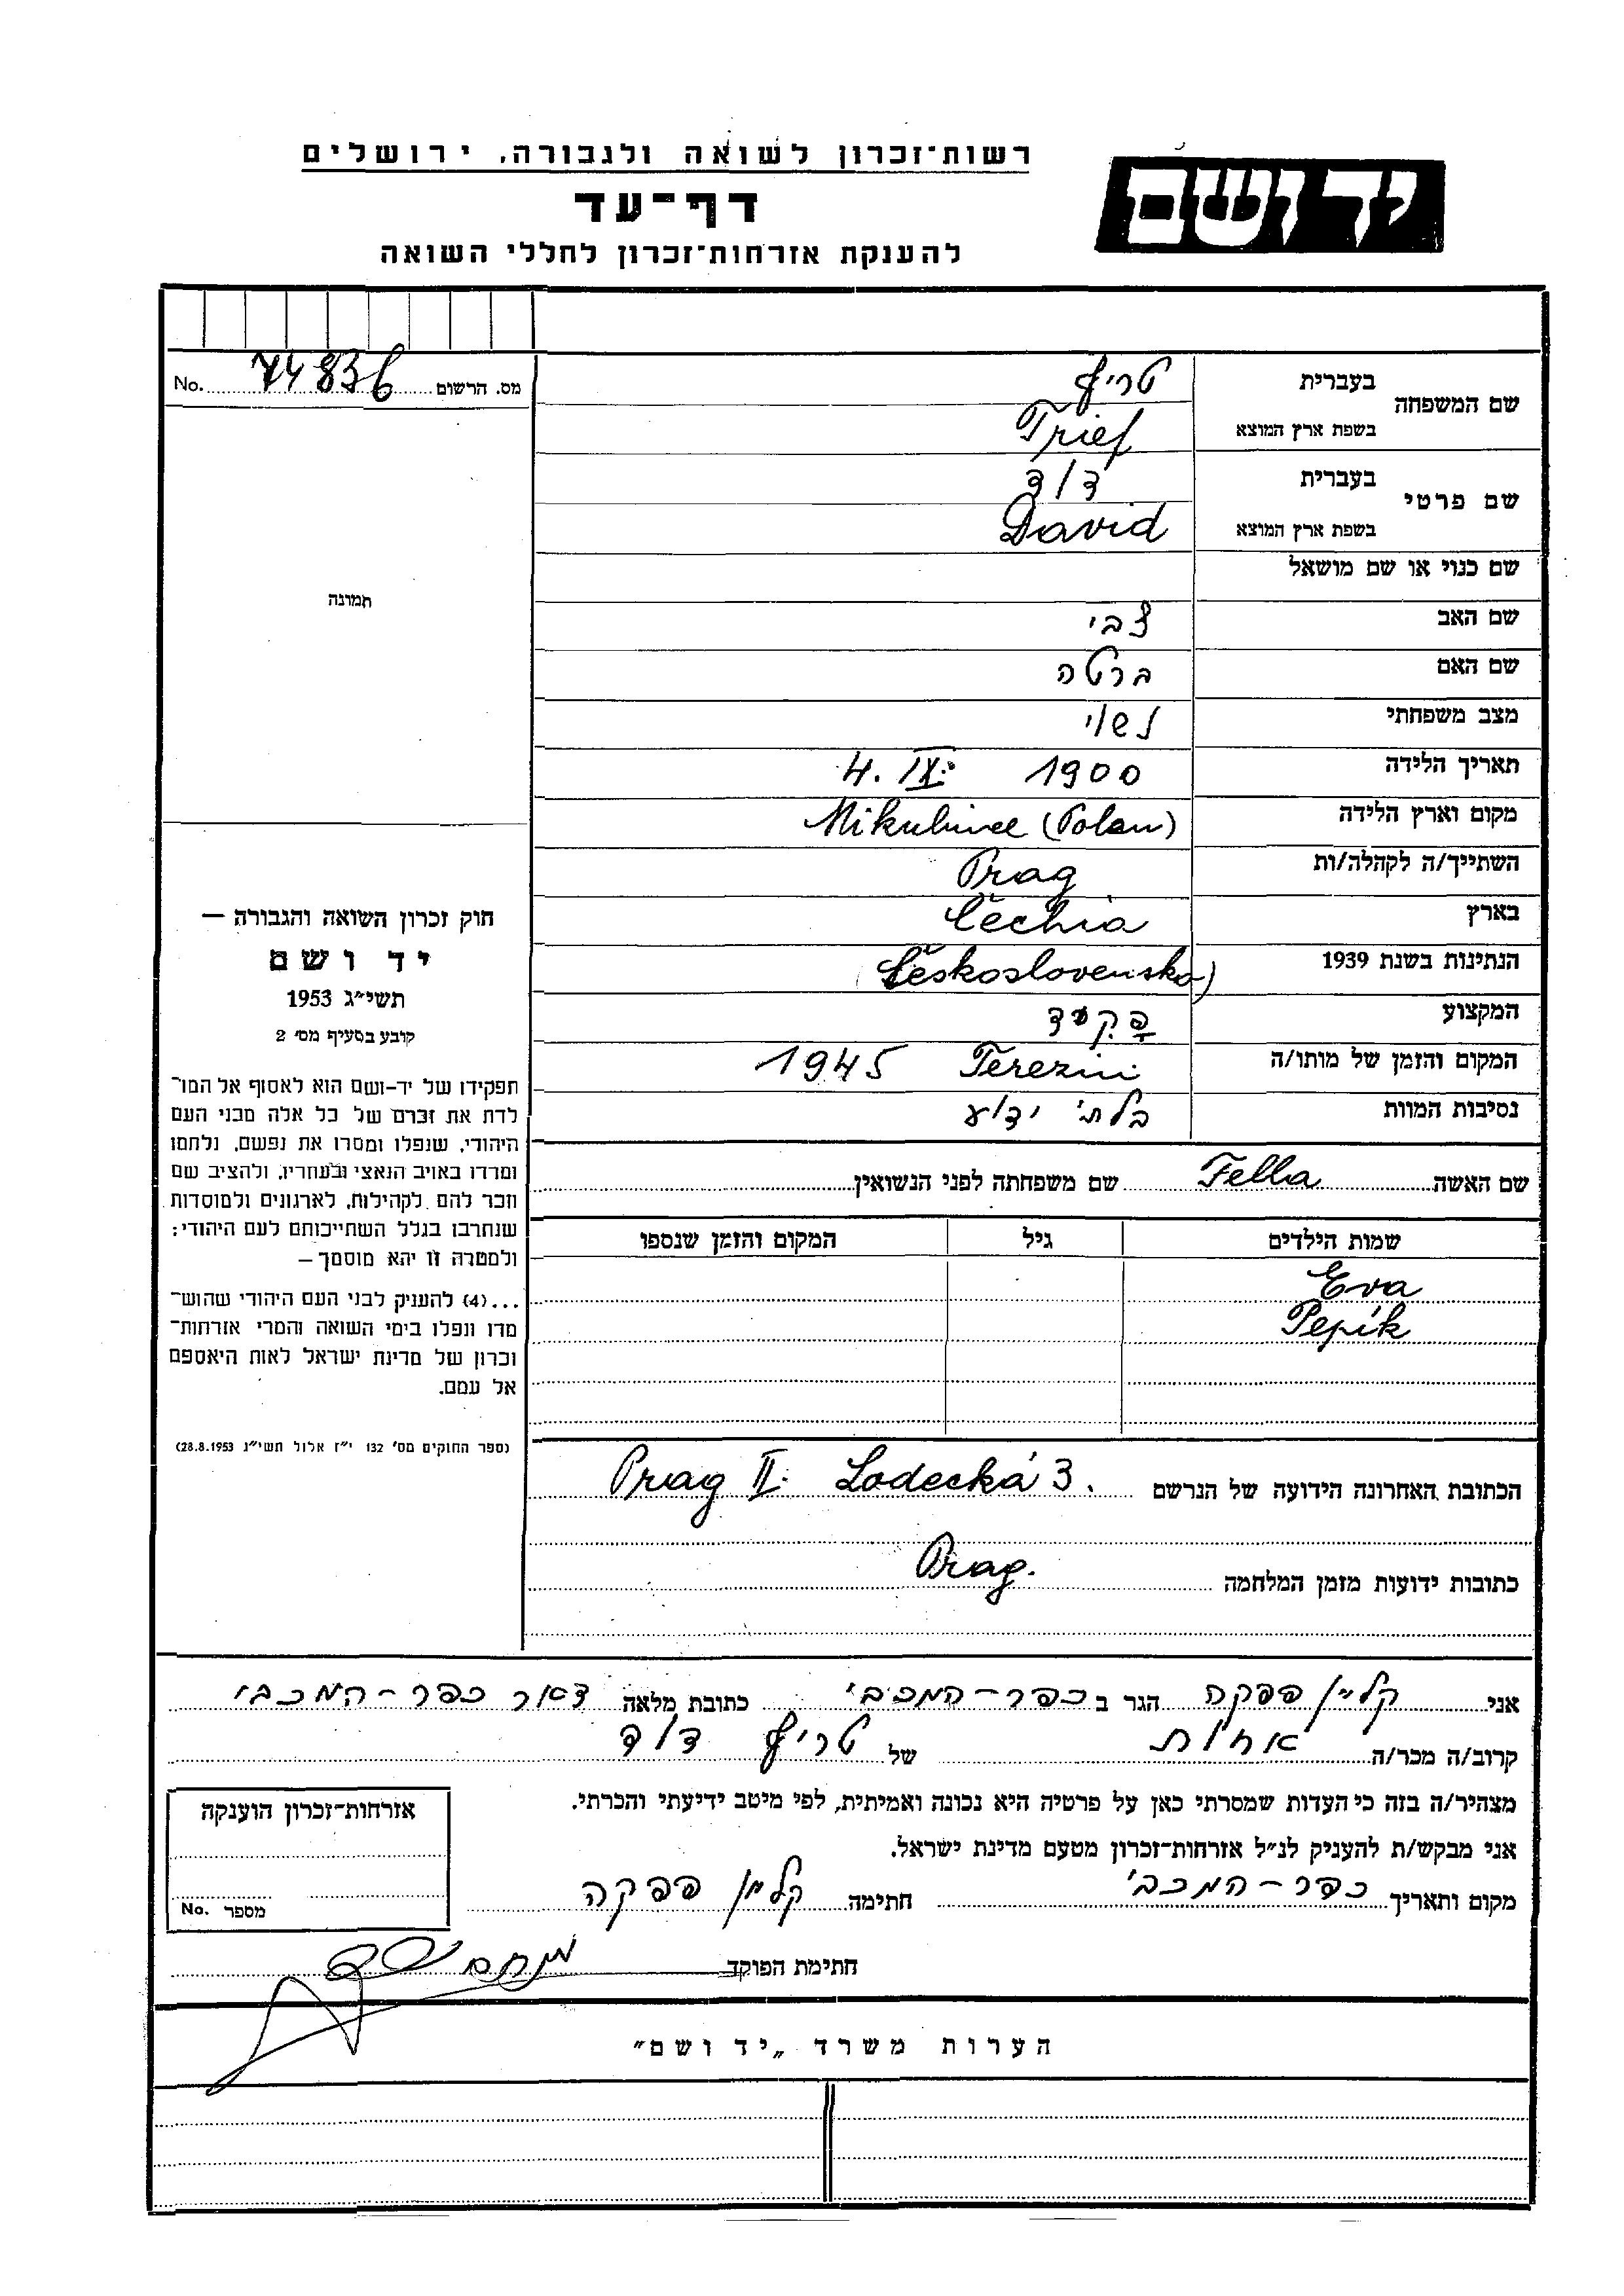 רשות־זכרון לשואה ולגבורה, ירושלים
יד ושם
דף־עד
להענקת אזרחות־זכרון לחללי השואה
No. 74836 מס. הרשום
שם המשפחה בעברית טריף
בשפת ארץ המוצא Trief
שם פרטי בעברית דוד
בשפת ארץ המוצא David
שם כנוי או שם מושאל
שם האב צבי
שם האם ברטה
מצב משפחתי נשוי
תאריך הלידה 4. IX. 1900
מקום וארץ הלידה Mikulince (Polan)
השתייך/ה לקהלה/ות Prag
בארץ Čechia
הנתינות בשנת 1939 (Československo)
המקצוע פקיד
המקום והזמן של מותו/ה Terezin 1945
נסיבות המוות בלתי ידוע
שם האשה Fella שם משפחתה לפני הנשואין
שמות הילדים גיל המקום והזמן שנספו
Eva
Pepík
הכתובת האחרונה הידועה של הנרשם Prag II. Lodecká 3.
כתובות ידועות מזמן המלחמה Prag.
תמונה
חוק זכרון השואה והגבורה —
יד ושם
תשי״ג 1953
קובע בסעיף מס׳ 2
תפקידו של יד־ושם הוא לאסוף אל המו־
לדת את זכרם של כל אלה מבני העם
היהודי, שנפלו ומסרו את נפשם, נלחמו
ומרדו באויב הנאצי ובעוזריו, ולהציב שם
וזכר להם, לקהילות, לארגונים ולמוסדות
שנחרבו בגלל השתייכותם לעם היהודי;
ולמטרה זו יהא מוסמך —
...(4) להעניק לבני העם היהודי שהוש־
מדו ונפלו בימי השואה והמרי אזרחות־
זכרון של מדינת ישראל לאות היאספם
אל עמם.
(ספר החוקים מס׳ 132 י״ז אלול תשי״ג 28.8.1953)
אני קליין פפקה הגר ב כפר-המכבי כתובת מלאה דאר כפר-המכבי
קרוב/ה מכר/ה אחות של טריף דוד
מצהיר/ה בזה כי העדות שמסרתי כאן על פרטיה היא נכונה ואמיתית, לפי מיטב ידיעתי והכרתי.
אני מבקש/ת להעניק לנ״ל אזרחות־זכרון מטעם מדינת ישראל.
מקום ותאריך כפר-המכבי חתימה קליין פפקה
אזרחות־זכרון הוענקה
No. מספר
חתימת הפוקד
הערות משרד „יד ושם״